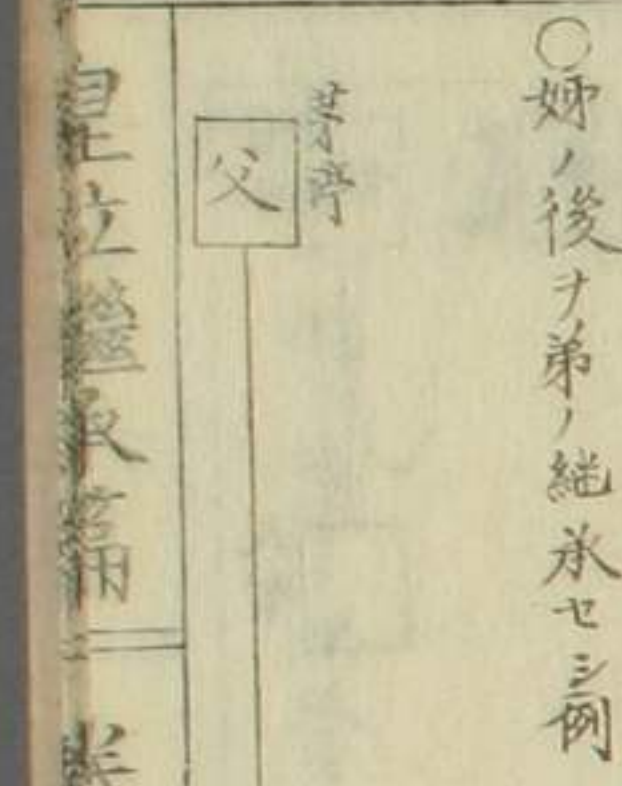 ○姉ノ後ヲ弟ノ継承セシ例
茅渟
父
皇位繼承篇